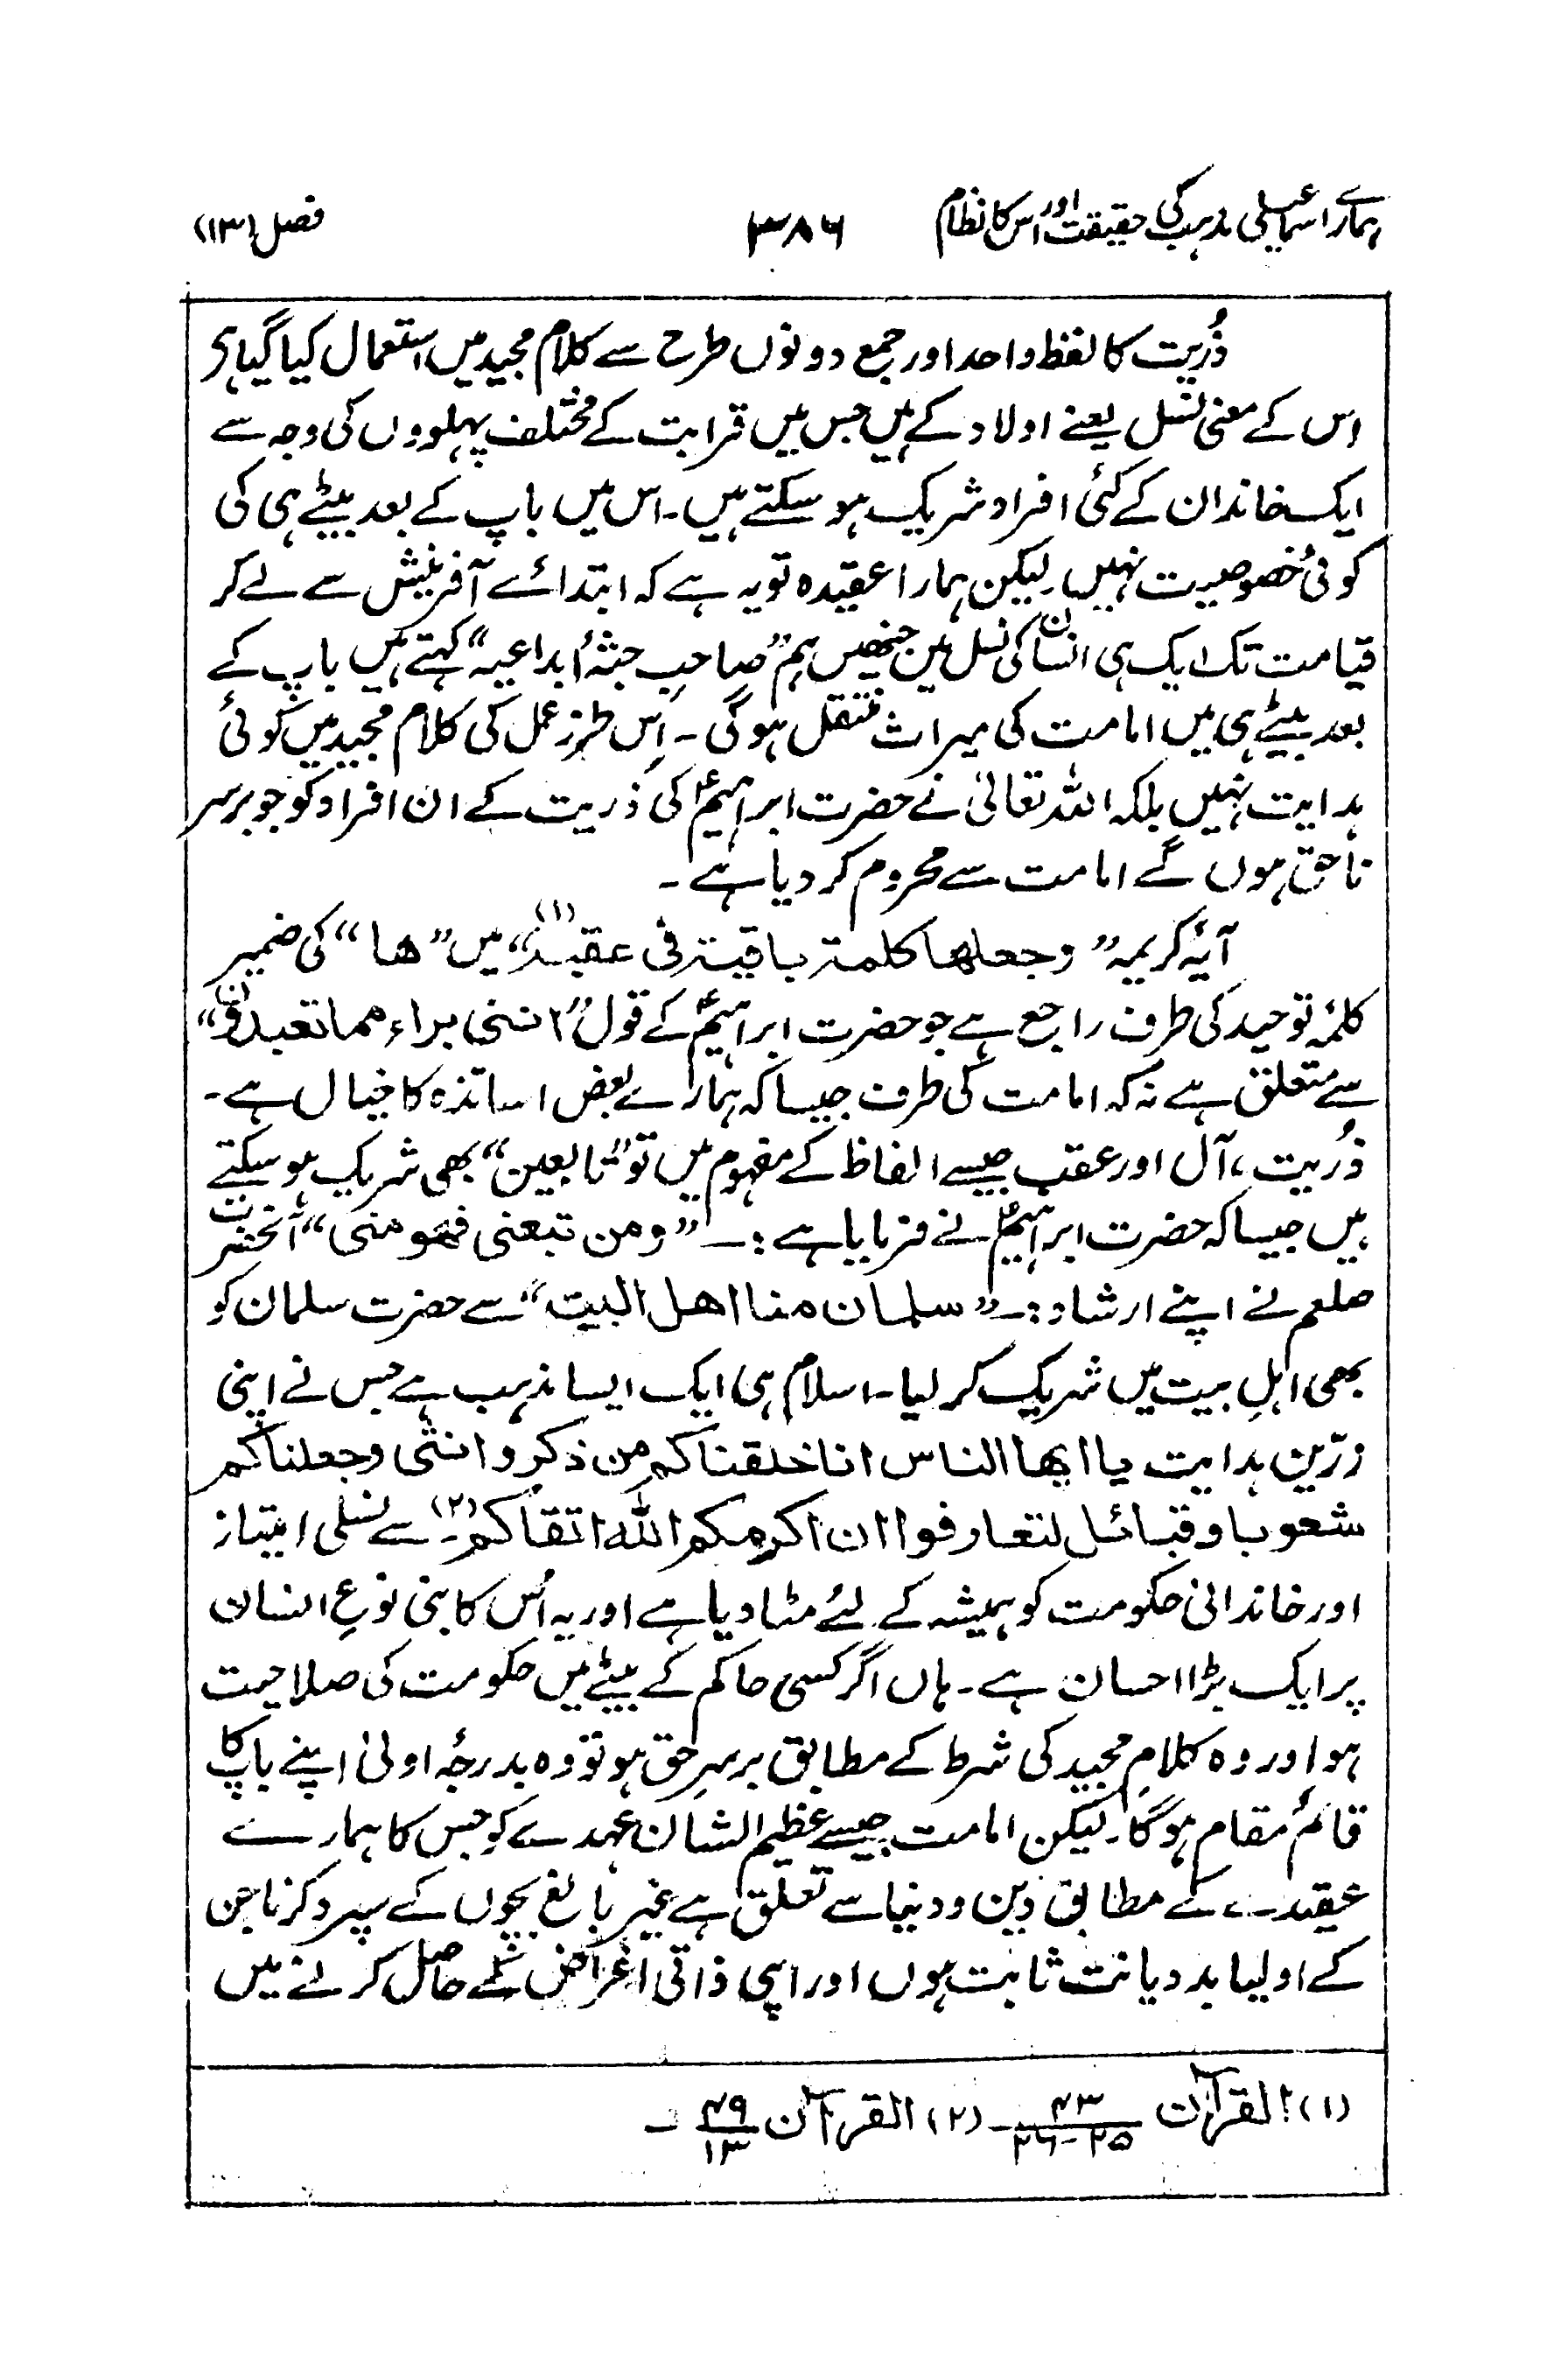 ہمارے اسماعیلی مذہب کی حقیقت اور اس کا نظام ۳۸۶ فصل (۱۳)
ذُریت کا لفظ واحد اور جمع دونوں طرح سے کلام مجید میں استعمال کیا گیا ہی
اس کے معنی نسل یعنے اولاد کے ہیں جس میں قرابت کے مختلف پہلووں کی وجہ سے
ایک خاندان کے کئی افراد شریک ہو سکتے ہیں۔ اس میں باپ کے بعد بیٹے ہی کی
کوئی خصوصیت نہیں۔ لیکن ہمارا عقیدہ تو یہ ہے کہ ابتدائے آفرینش سے لے کر
قیامت تک ایک ہی انسان کی نسل میں جنھیں ہم ”صاحبِ جثۂ ابداعیہ“ کہتے ہیں باپ کے
بعد بیٹے ہی میں امامت کی میراث منتقل ہوگی۔ اِس طرز عمل کی کلام مجید میں کوئی
ہدایت نہیں بلکہ اللہ تعالیٰ نے حضرت ابراہیمؑ کی ذریت کے ان افراد کو جو برسر
ناحق ہوں گے امامت سے محروم کر دیا ہے۔
آیۂ کریمہ ”وجعلھا کلمۃ باقیۃ فی عقبہ (۱)“ میں ”ھا“ کی ضمیر
کلمۂ توحید کی طرف راجع ہے جو حضرت ابراہیمؑ کے قول ”اننی براء مما تعبدون“
سے متعلق ہے نہ کہ امامت کی طرف جیسا کہ ہمارے بعض اساتذہ کا خیال ہے۔
ذُریت، آل اور عقب جیسے الفاظ کے مفہوم میں تو ”تابعین“ بھی شریک ہو سکتے
ہیں جیسا کہ حضرت ابراہیمؑ نے فرمایا ہے :۔ ”ومن تبعنی فھو منی“ آنحضرت
صلعم نے اپنے ارشاد :۔ ”سلمان منا اھل البیت“ سے حضرت سلمان کو
بھی اہلِ بیت میں شریک کر لیا۔ اسلام ہی ایک ایسا مذہب ہے جس نے اپنی
زرّین ہدایت یا ایھا الناس انا خلقناکم من ذکر و انثی وجعلناکم
شعوبا وقبائل لتعارفوا ان اکرمکم اللہ اتقاکم۔ (۲) سے نسلی امتیاز
اور خاندانی حکومت کو ہمیشہ کے لئے مٹا دیا ہے اور یہ اُس کا بنی نوعِ انسان
پر ایک بڑا احسان ہے۔ ہاں اگر کسی حاکم کے بیٹے میں حکومت کی صلاحیت
ہو اور وہ کلامِ مجید کی شرط کے مطابق برسرِ حق ہو تو وہ بدرجہ اولیٰ اپنے باپ کا
قائم مقام ہوگا۔ لیکن امامت جیسے عظیم الشان عہدے کو جس کا ہمارے
عقیدے کے مطابق دین و دنیا سے تعلق ہے غیر بالغ بچوں کے سپرد کرنا جن
کے اولیا بد دیانت ثابت ہوں اور اپنی ذاتی اغراض کے حاصل کرنے میں
(۱) القرآن ۴۳/۲۵-۲۶۔ (۲) القرآن ۴۹/۱۳۔